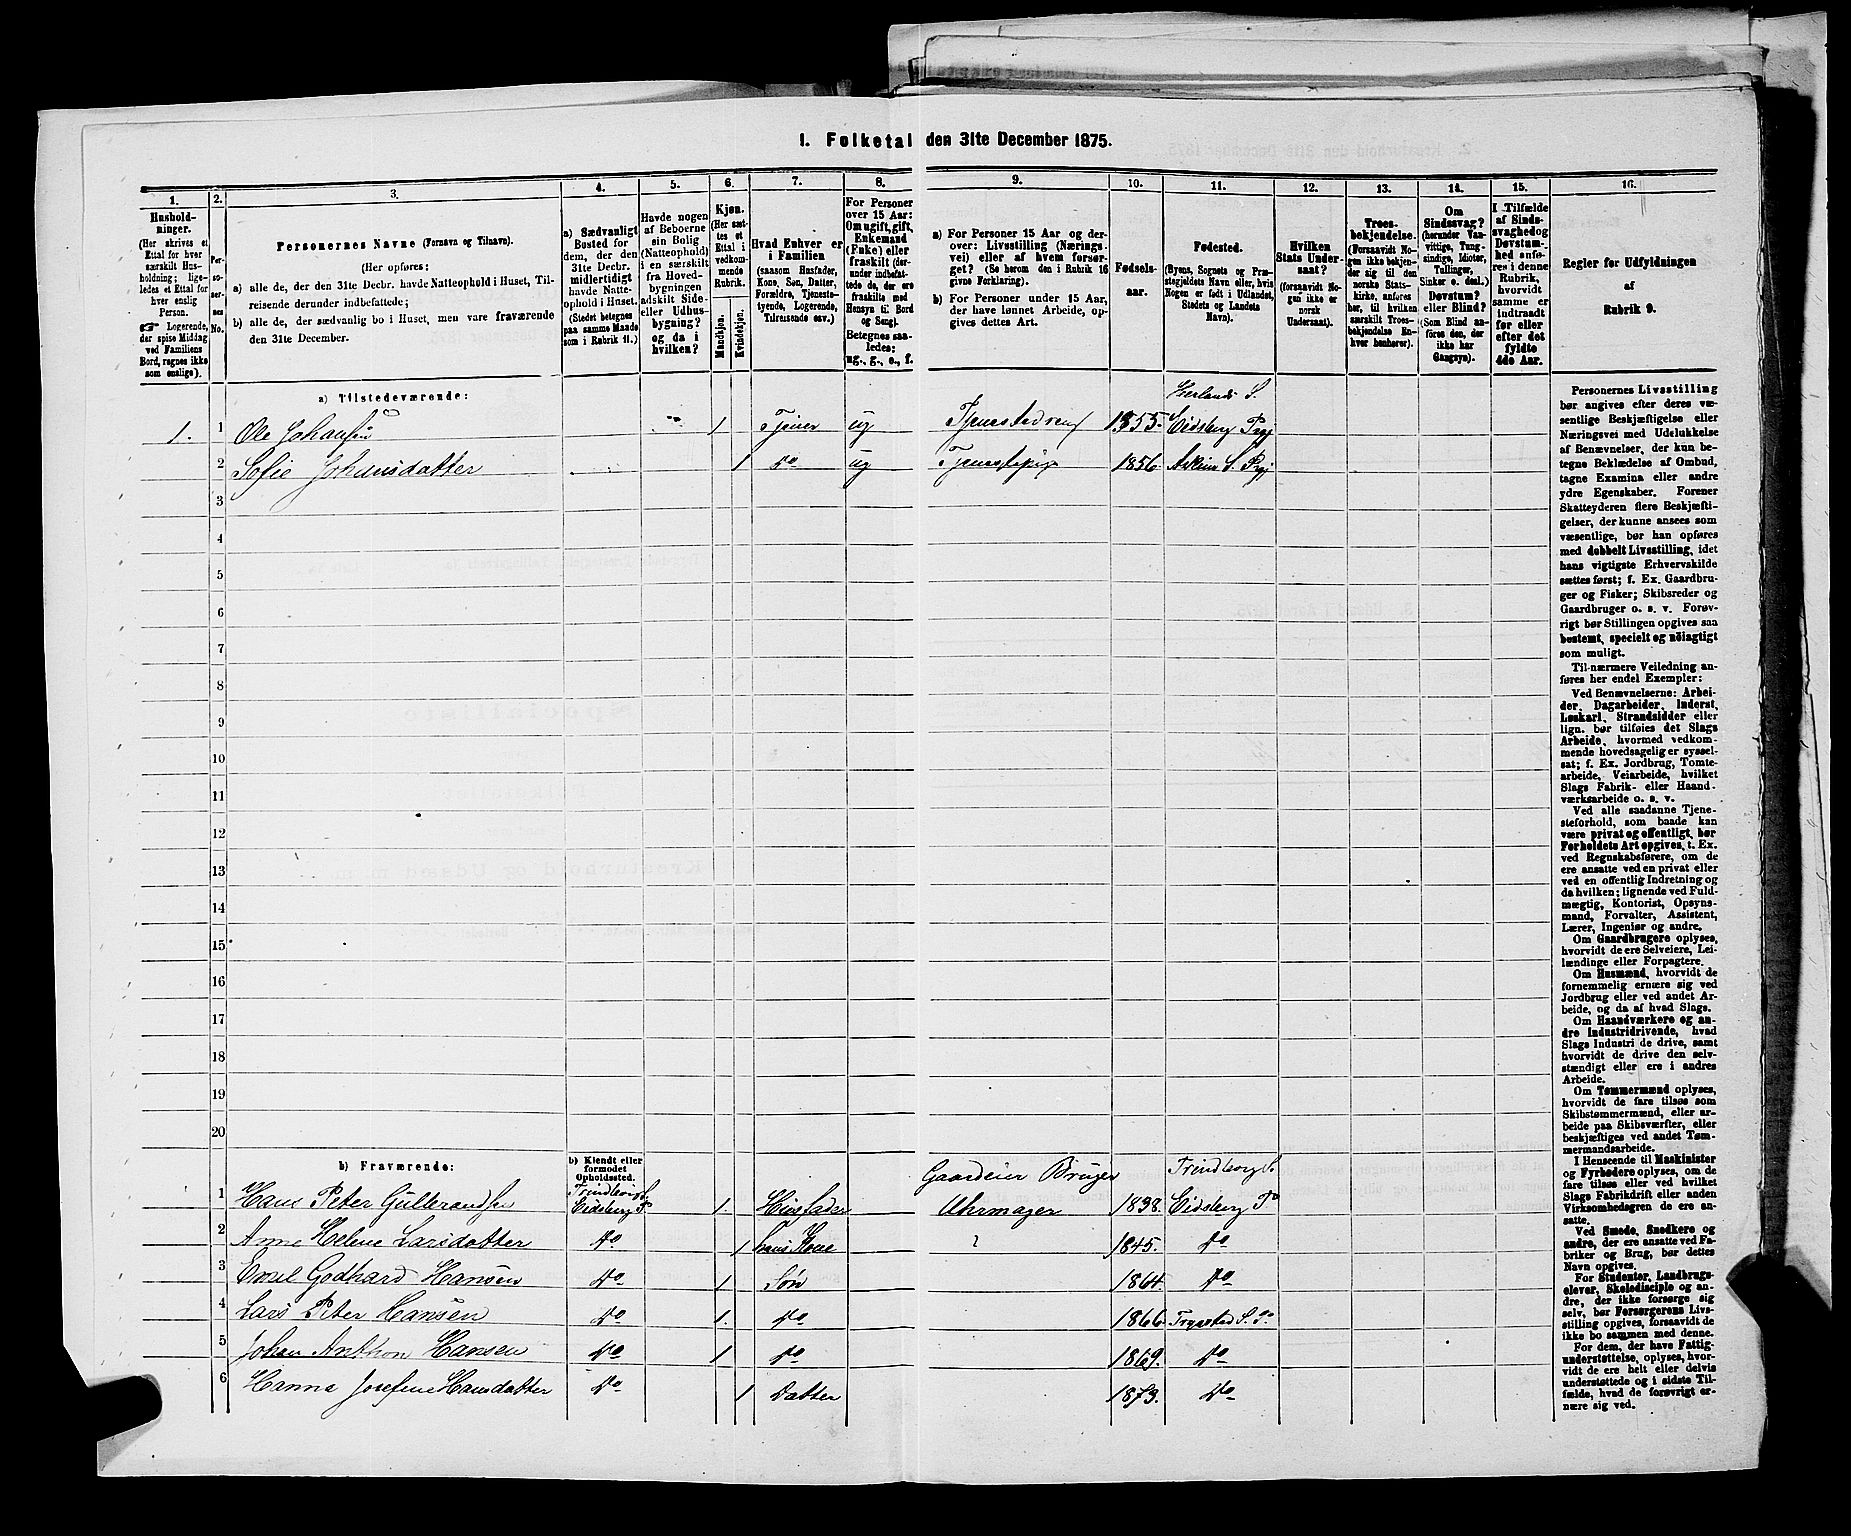 1. Folketal den 31te December 1875.
1. 2. 3. 4. 5. 6. 7. 8. 9. 10. 11. 12. 13. 14. 15. 16.
Hushold-
ninger.
(Her skrives et
Ettal for hver
særskilt Hus-
holdning; lige-
ledes et Ettal for
hver enslig
Person.
Logerende,
der spise Middag
ved Familiens
Bord, regnes ikke
som enslige).
Per-
so-
ner-
nes
No.
Personernes Navne (Fornavn og Tilnavn).
(Her opføres:
a) alle de, der den 31te Decbr. havde Natteophold i Huset, Til-
reisende derunder indbefattede;
b) alle de, der sædvanlig bo i Huset, men vare fraværende
den 31te December.
a) Sædvanligt
Bosted for
dem, der den
31te Decbr.
midlertidigt
havde Natte-
ophold i Huset.
(Stedet betegnes
paa samme Maade
som i Rubrik 11.)
Havde nogen
af Beboerne
sin Bolig
(Natteophold)
i en særskilt
fra Hoved-
bygningen
adskilt Side-
eller Udhus-
bygning?
og da i
hvilken?
Kjøn.
(Her sæt-
tes et
Ettal i
vedkom-
mende
Rubrik.
Mandkjøn.
Kvindekjøn.
Hvad Enhver er
i Familien
(saasom Husfader,
Kone, Søn, Datter,
Forældre, Tjeneste-
tyende, Logerende,
Tilreisende osv.)
For Personer
over 15 Aar:
Om ugift, gift,
Enkemand
(Enke) eller
fraskilt (der-
under indbefat-
tede de, der ere
fraskilte med
Hensyn til Bord
og Seng).
Betegnes saa-
ledes:
ug., g., e., f.
a) For Personer 15 Aar og der-
over: Livsstilling (Nærings-
vei) eller af hvem forsør-
get? (Se herom den i Rubrik 16
givne Forklaring).
b) For Personer under 15 Aar,
der have lønnet Arbeide, op-
gives dettes Art.
Fødsels-
aar.
Fødested.
(Byens, Sognets og Præ-
stegjeldets Navn eller, hvis
Nogen er født i Udlandet,
Stedets og Landets
Navn).
Hvilken
Stats Under-
saat?
(forsaavidt No-
gen ikke er
norsk
Undersaat).
Troes-
bekjendelse.
(Forsaavidt No-
gen ikke bekjen-
der sig til den
norske Stats-
kirke, anføres
her, til hvilken
særskilt Troes-
bekjendelse En-
hver henhører).
Om
Sindssvag?
(herunder Van-
vittige, Tung-
sindige, Idioter,
Tullinger,
Sinker o. desl.)
Døvstum?
eller Blind?
(Som Blind an-
føres den, der
ikke har
Gangsyn).
I Tilfælde
af Sinds-
svaghed og
Døvstum-
hed anfø-
res i denne
Rubrik,
hvorvidt
samme er
indtraadt
før eller
efter det
fyldte
4de Aar.
Regler før Udfyldningen
af
Rubrik 9.
a) Tilstedeværende:
Herlands S.
1. 1 Ole Johansen 1 Tjener ug Tjenestedreng 1855. Eidsberg Prgj
2 Sofie Johansdatter 1 Do ug Tjenestepige 1856. Askim S. Prgj
3
4
5
6
7
8
9
10
11
12
13
14
15
16
17
18
19
20
b) Fraværende:
b) Kjendt eller
formodet
Opholdssted.
Trindborg S. Gaardeier Bruger Trindborg S.
1 Hans Peter Gulbrandsen Eidsberg P 1. Husfader Uhrmager 1838. Eidsberg P
2 Anne Helene Larsdatter Do 1 hans Kone 1845. Do
3 Emil Godhard Hansen Do 1 Søn 1864. Do
4 Lars Peter Hansen Do 1. Do 1866. Trygstad S. P.
5 Johan Anthon Hansen Do 1 Do 1869. Do
6 Hanna Josefine Hansdatter Do 1 Datter 1873. Do
Personernes Livsstilling
bør angives efter deres væ-
sentlige Beskjæftigelse eller
Næringsvei med Udelukkelse
af Benævnelser, der kun be-
tegne Beklædelse af Ombud,
tagne Examina eller andre
ydre Egenskaber. Forener
Skatteyderen flere Beskjæfti-
gelser, der kunne ansees som
væsentlige, bør han opføres
med dobbelt Livsstilling, idet
hans vigtigste Erhvervskilde
sættes først; f. Ex. Gaardbru-
ger og Fisker; Skibsreder og
Gaardbruger o. s. v. Forøv-
rigt bør Stillingen opgives saa
bestemt, specielt og nøiagtigt
som muligt.
Til nærmere Veiledning an-
føres her endel Exempler:
Ved Benævnelserne: Arbei-
der, Dagarbeider, Inderst,
Løskarl, Strandsidder eller
lign. bør tilføies det Slags
Arbeide, hvormed vedkom-
mende hovedsagelig er syssel-
sat; f. Ex. Jordbrug, Tomte-
arbeide, Veiarbeide, hvilket
Slags Fabrik- eller Haand-
værksarbeide o. s. v.
Ved alle saadanne Tjene-
steforhold, som baade kan
være privat og offentligt, bør
Forholdets Art opgives, t. Ex.
ved Regnskabsførere, om de
ere ansatte ved en privat eller
ved en offentlig Indretning og
da hvilken; lignende ved Fuld-
mægtig, Kontorist, Opsyns-
mand, Forvalter, Assistent,
Lærer, Ingeniør og andre.
Om Gaardbrugere oplyses,
hvorvidt de ere Selveiere, Lei-
lændinge eller Forpagtere.
Om Husmænd, hvorvidt de
fornemmelig ernære sig ved
Jordbrug eller ved andet Ar-
beide, og da af hvad Slags.
Om Haandværkere og an-
dre Industridrivende, hvad
Slags Industri de drive, samt
hvorvidt de drive den selv-
stændigt eller ere i andres
Arbeide.
Om Tømmermænd oplyses,
hvorvidt de fare tilsøs som
Skibstømmermænd, eller ar-
beide paa Skibsværfter, eller
beskjæftiges ved andet Tøm-
mermandsarbeide.
I Henseende til Maskinister
og Fyrbødere oplyses, om de
fare tilsøs eller ved hvilket
Slags Fabrikdrift eller anden
Virksomhedsgren de ere an-
satte.
Ved Smede, Snedkere og
andre, der ere ansatte ved Fa-
briker og Brug, bør dettes
Navn opgives.
For Studenter, Landbrugs-
elever, Skoledisciple og an-
dre, der ikke forsørge sig
selv, bør Forsørgerens Livs-
stilling opgives, forsaavidt de
ikke bo sammen med denne.
For dem, der have Fattig-
understøttelse, oplyses, hvor-
vidt de ere helt eller delvis
understøttede og i sidste Til-
fælde, hvad de forøvrigt er-
nære sig ved.